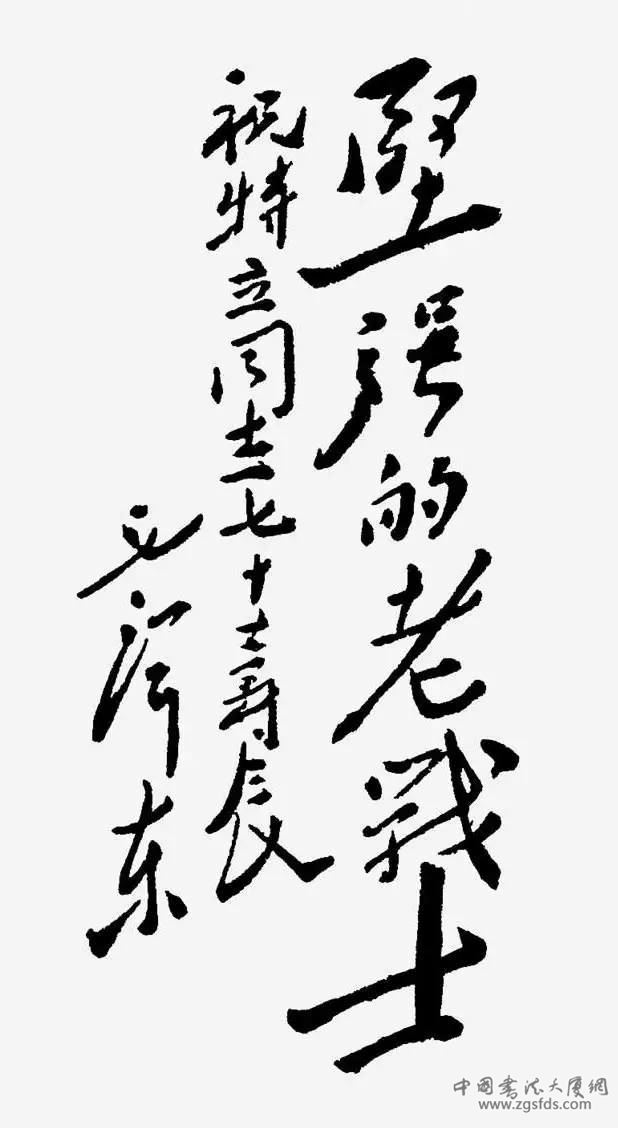 堅强的老戰士
祝特立同志七十壽辰
毛澤东
中国書法大厦網
www.zgsfds.com